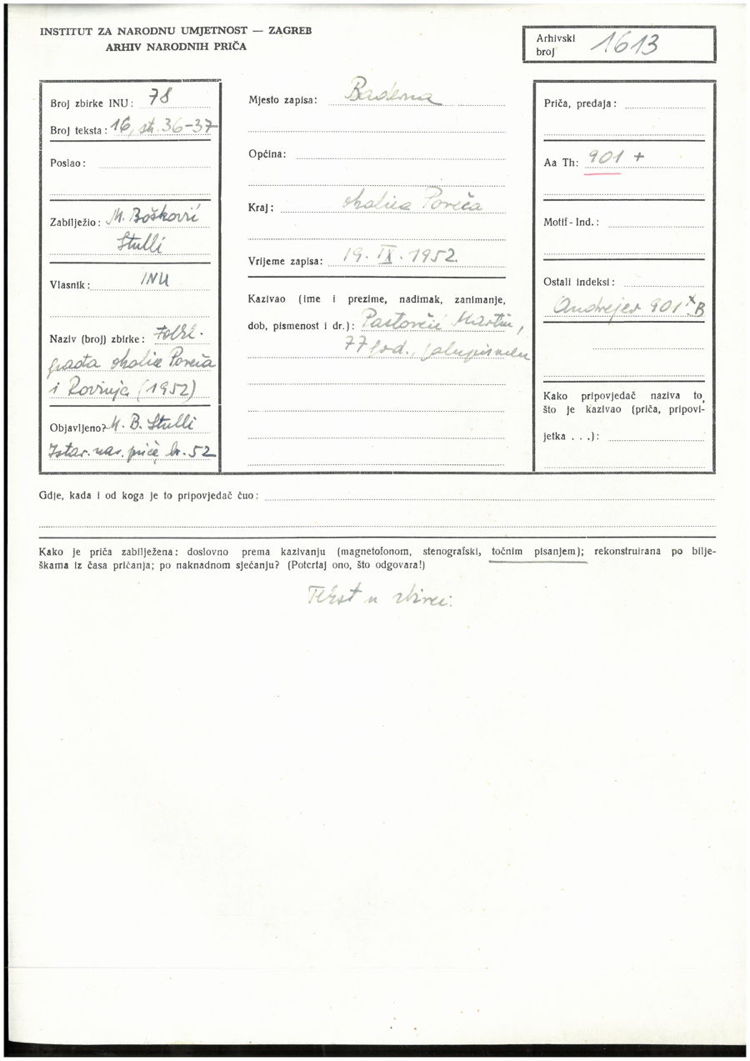 INSTITUT ZA NARODNU UMJETNOST — ZAGREB
ARHIV NARODNIH PRIČA
Arhivski broj 1613
Broj zbirke INU: 78
Broj teksta: 16, str. 36-37
Poslao:
Zabilježio: M. Bošković
Stulli
Vlasnik: INU
Naziv (broj) zbirke: Folkl.
građa okolice Poreča
i Rovinja (1952)
Objavljeno? M. B. Stulli
Istar. nar. priče, br. 52
Mjesto zapisa: Baderna
Općina:
Kraj: okolica Poreča
Vrijeme zapisa: 19. IX. 1952.
Kazivao (ime i prezime, nadimak, zanimanje,
dob, pismenost i dr.): Martin,
77 god., polupismen
Priča, predaja:
Aa Th: 901 +
Motif-Ind.:
Ostali indeksi:
Andrejev 901 x B
Kako pripovjedač naziva to
što je kazivao (priča, pripovi-
jetka . . .):
Gdje, kada i od koga je to pripovjedač čuo:
Kako je priča zabilježena: doslovno prema kazivanju (magnetofonom, stenografski, točnim pisanjem); rekonstruirana po bilje-
škama iz časa pričanja; po naknadnom sjećanju? (Potcrtaj ono, što odgovara!)
Tekst u zbirci.